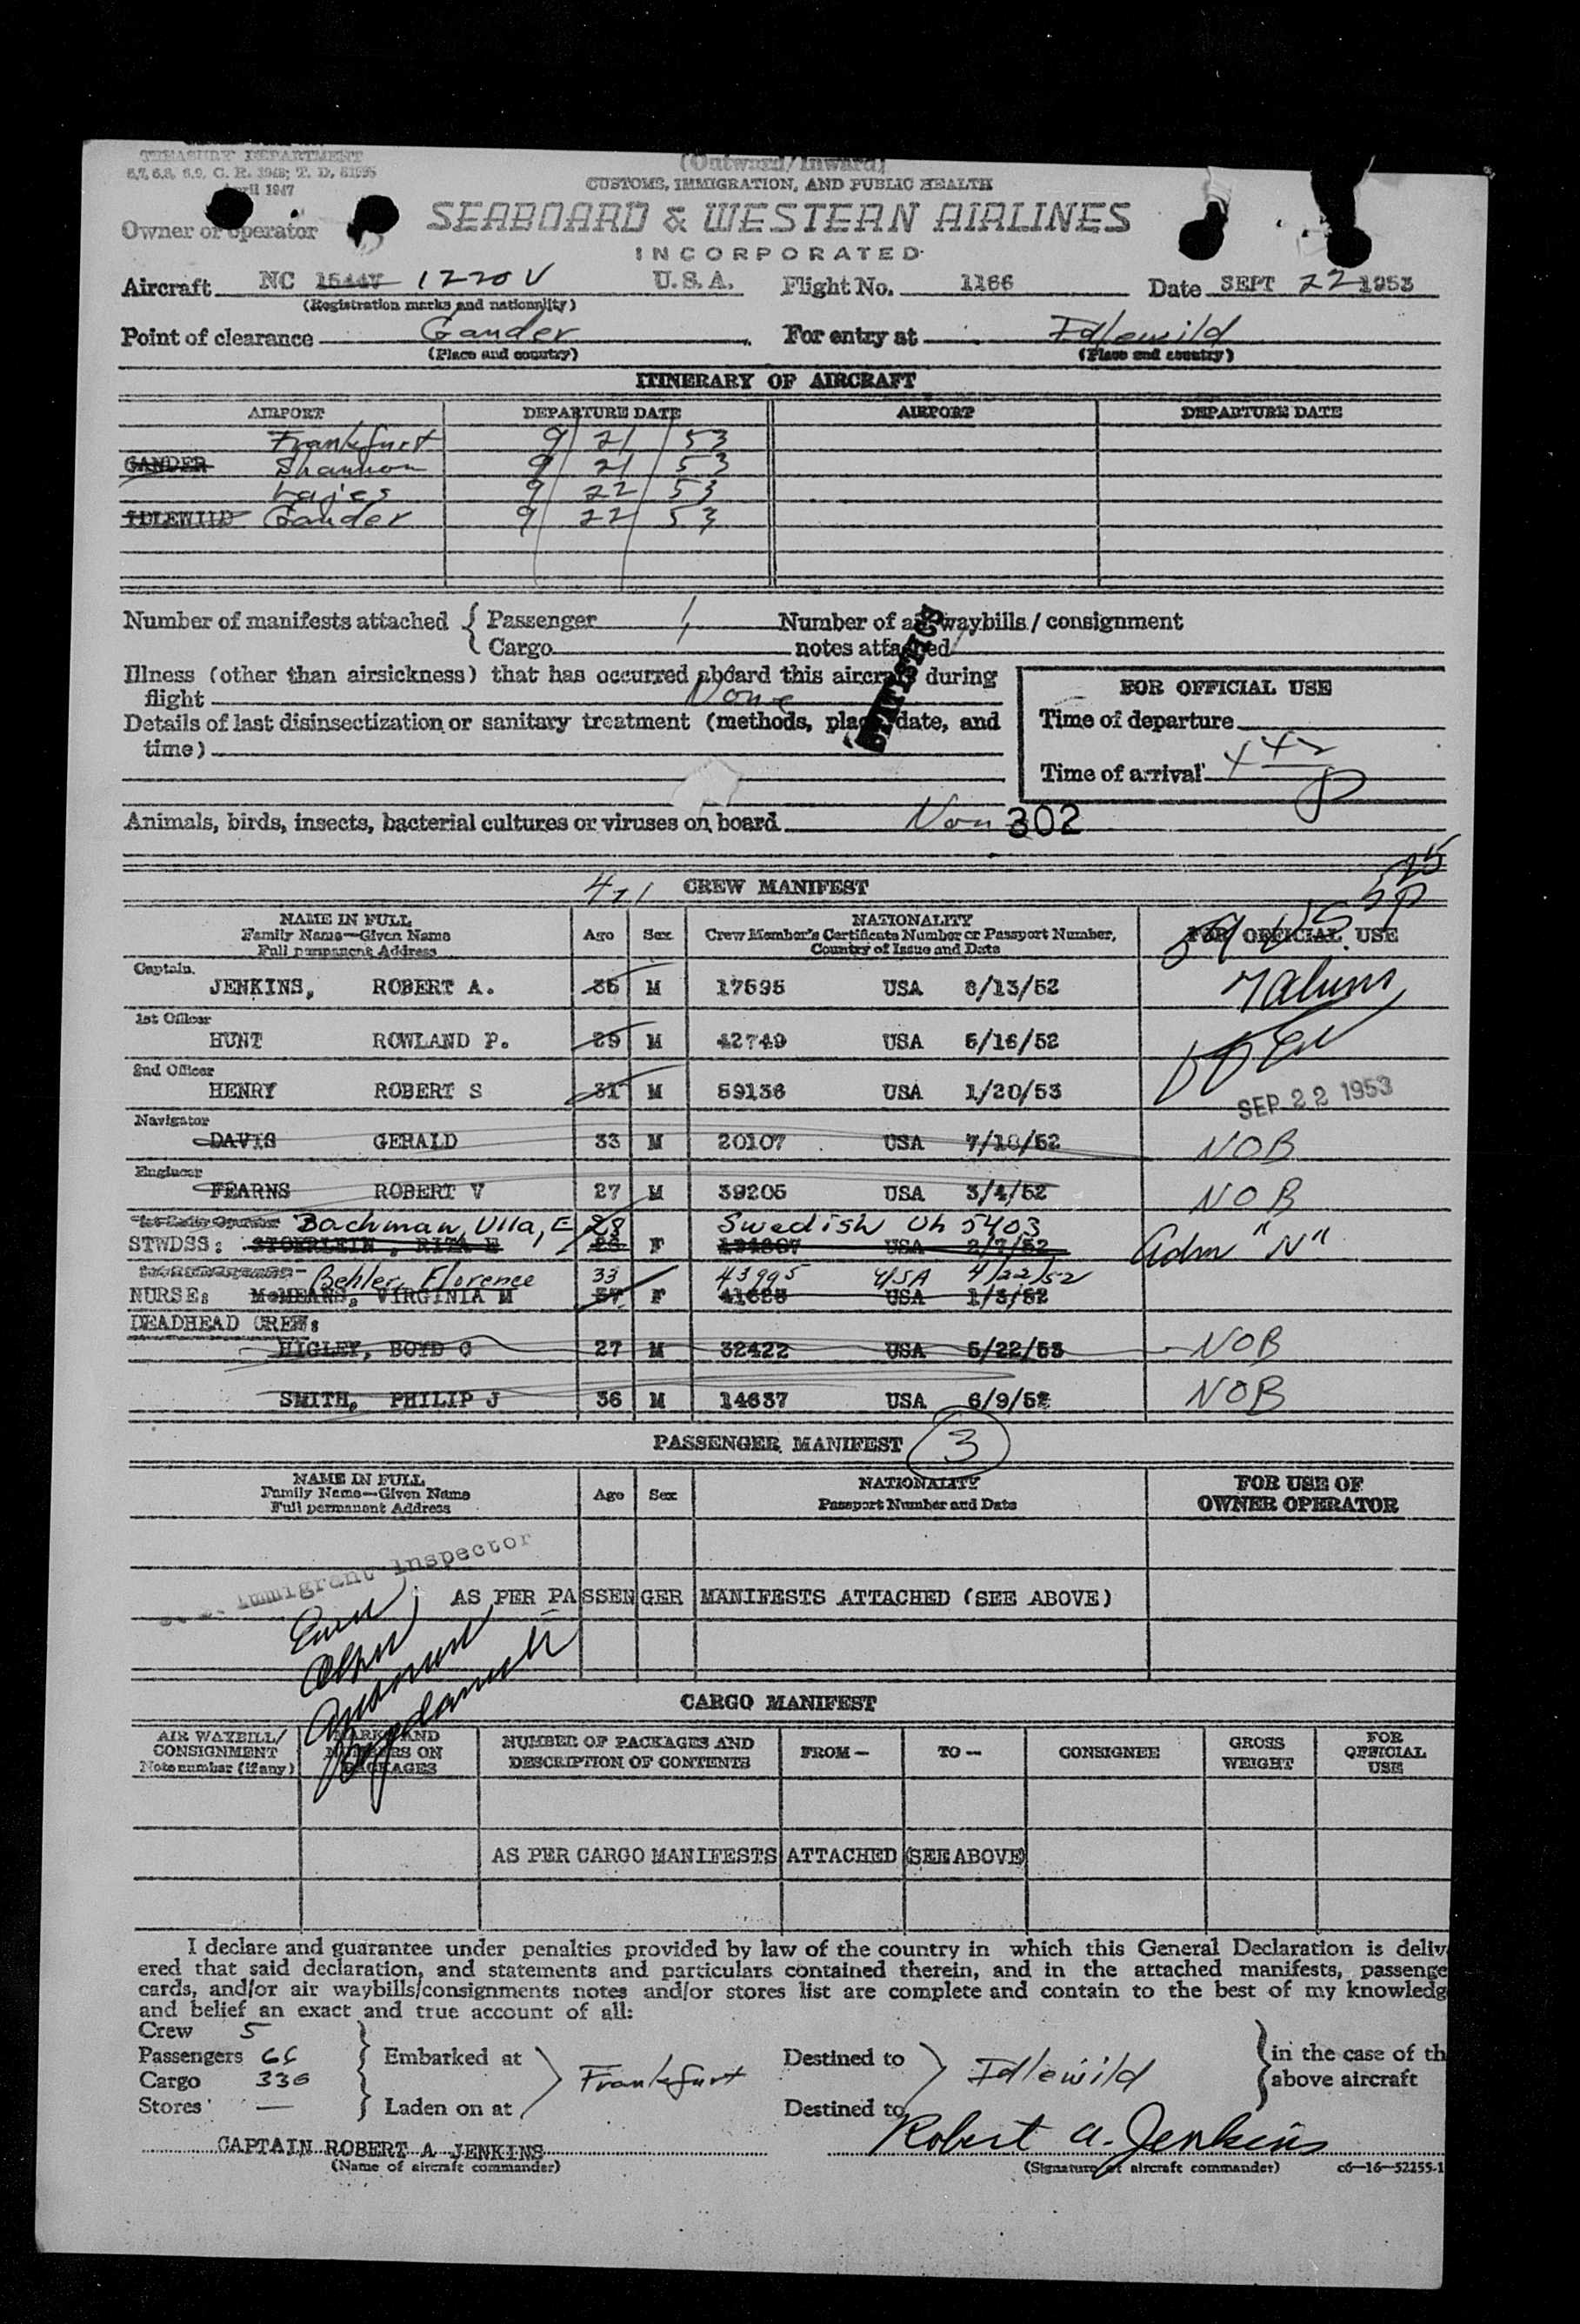 TREASURY DEPARTMENT
6.7, 6.8, 6.9, C. R. 1943; T. D. 51595
April 1947
(Outward/Inward)
CUSTOMS, IMMIGRATION, AND PUBLIC HEALTH
Owner or operator SEABOARD & WESTERN AIRLINES
INCORPORATED
Aircraft NC 1544V 1220V U.S.A. Flight No. 1166 Date SEPT 22 1953
(Registration marks and nationality)
Point of clearance Gander For entry at Idlewild
(Place and country) (Place and country)
ITINERARY OF AIRCRAFT
AIRPORT DEPARTURE DATE AIRPORT DEPARTURE DATE
Frankfurt 9/21/53
GANDER Shannon 9/21/53
Lajes 9/22/53
IDLEWILD Gander 9/22/53
Number of manifests attached { Passenger 1 Number of air waybills / consignment
Cargo 1 notes attached
Illness (other than airsickness) that has occurred aboard this aircraft during
flight None
Details of last disinsectization or sanitary treatment (methods, place, date, and
time)
STATISTICS
FOR OFFICIAL USE
Time of departure
Time of arrival 442 P
Animals, birds, insects, bacterial cultures or viruses on board Non 302
4+1 CREW MANIFEST
NAME IN FULL
Family Name—Given Name
Full permanent Address
Age Sex
NATIONALITY
Crew Member's Certificate Number or Passport Number,
Country of Issue and Date
FOR OFFICIAL USE
Captain
JENKINS, ROBERT A. 35 M 17595 USA 8/13/52
1st Officer
HUNT ROWLAND P. 29 M 42749 USA 5/16/52
2nd Officer
HENRY ROBERT S 31 M 59136 USA 1/20/53
SEP 22 1953
Navigator
DAVIS GERALD 33 M 20107 USA 7/18/52 NOB
Engineer
FEARNS ROBERT V 27 M 39205 USA 3/4/52 NOB
1st Radio Operator Bachman, Ulla, E 28 Swedish Uh 5403
STWDSS: STOERLEIN, RITA E 26 F USA 2/7/52 Adm "N"
Behler, Florence 33 43995 USA 4/22/52
NURSE: McMEANS, VIRGINIA M 37 F 41625 USA 1/3/52
DEADHEAD CREW:
HIGLEY, BOYD C 27 M 32422 USA 5/22/53 NOB
SMITH, PHILIP J 36 M 14637 USA 6/9/52 NOB
PASSENGER MANIFEST 3
NAME IN FULL
Family Name—Given Name
Full permanent Address
Age Sex
NATIONALITY
Passport Number and Date
FOR USE OF
OWNER OPERATOR
Immigrant Inspector
AS PER PASSENGER MANIFESTS ATTACHED (SEE ABOVE)
CARGO MANIFEST
AIR WAYBILL/
CONSIGNMENT
Note number (if any)
MARKS AND
NUMBERS ON
PACKAGES
NUMBER OF PACKAGES AND
DESCRIPTION OF CONTENTS
FROM—
TO—
CONSIGNEE
GROSS
WEIGHT
FOR
OFFICIAL
USE
AS PER CARGO MANIFESTS ATTACHED (SEE ABOVE)
I declare and guarantee under penalties provided by law of the country in which this General Declaration is deliv
ered that said declaration, and statements and particulars contained therein, and in the attached manifests, passenge
cards, and/or air waybills/consignments notes and/or stores list are complete and contain to the best of my knowledg
and belief an exact and true account of all:
Crew 5
Passengers 66 } Embarked at Frankfurt Destined to Idlewild } in the case of th
Cargo 336 above aircraft
Stores — } Laden on at Destined to
CAPTAIN ROBERT A JENKINS Robert A. Jenkins
(Name of aircraft commander) (Signature of aircraft commander) c6—16—52255-1